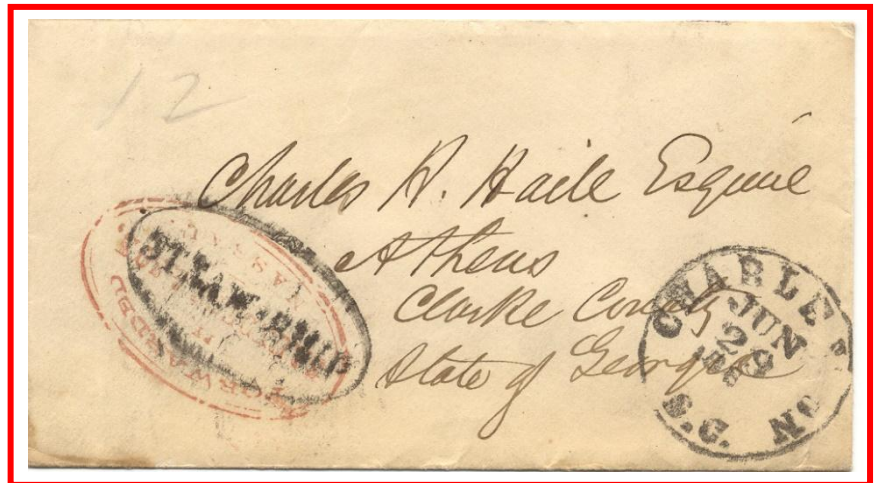 12
Charles H. Haile Esquire
Athens
Clarke County
State of Georgia
STEAM-SHIP
FORWARDED
CHARLESTON
S.C.
JUN
29